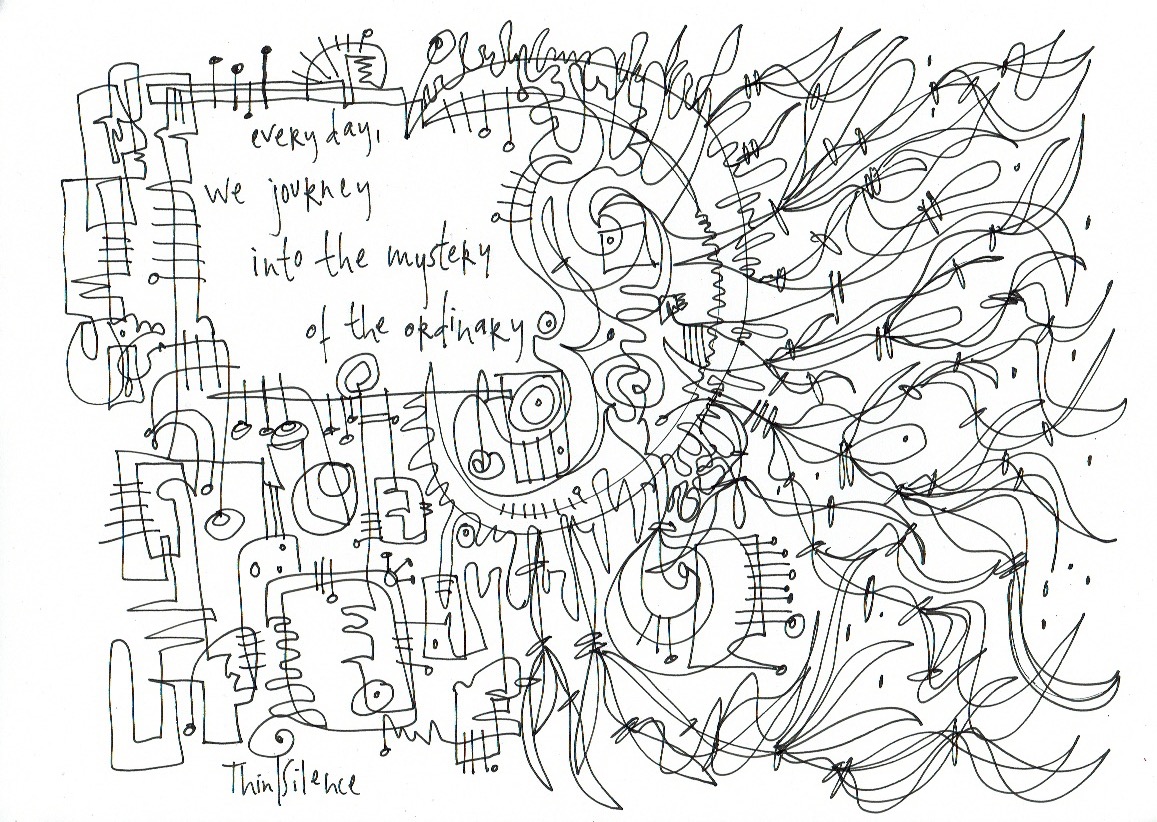 every day,
we journey
into the mystery
of the ordinary
Thin|Silence